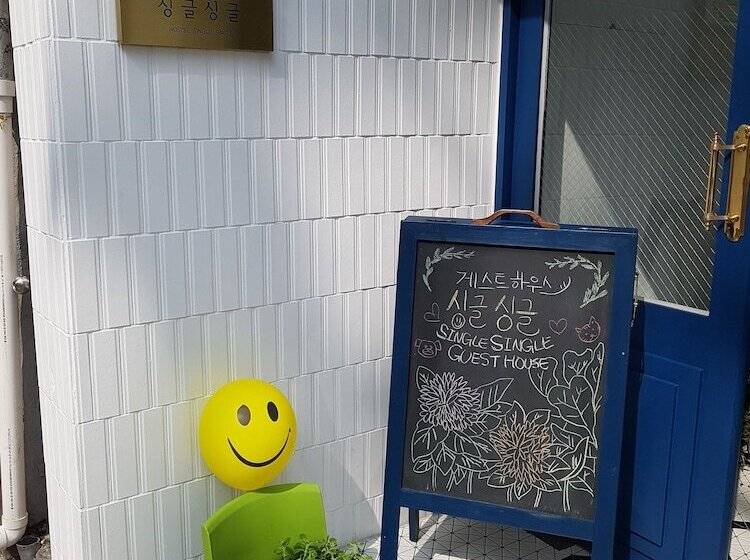 싱글싱글
게스트하우스
싱글싱글
SINGLE SINGLE
GUEST HOUSE